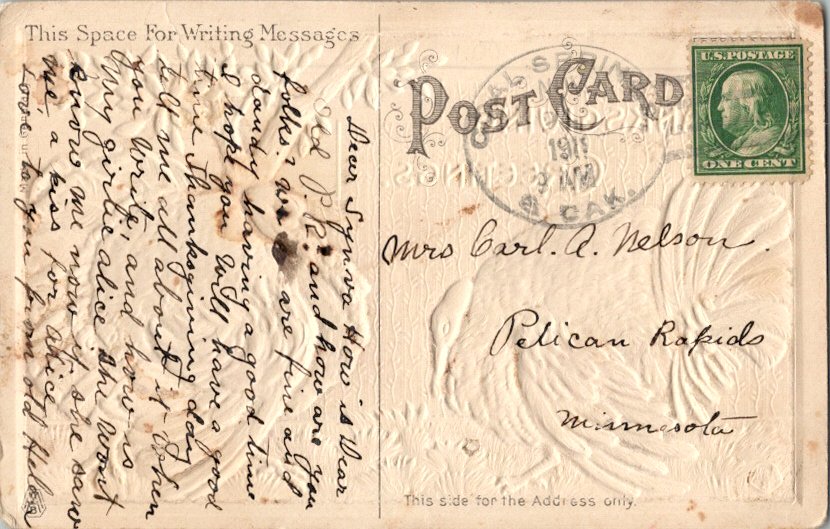 This Space For Writing Messages
POST CARD
U.S. POSTAGE
ONE CENT
1911
S. DAK.
Dear Synva How is Dear
Old P.R. and how are you
folks? we are fine and
dandy, having a good time
I hope you will have a good
time Thanksgiving day
tell me all about it when
you write, and how is
my girlie alice she wont
know me now if she saw
me, a kiss for alice
Love to you from old Helen
Mrs Carl. A. Nelson.
Pelican Rapids
Minnesota
This side for the Address only.